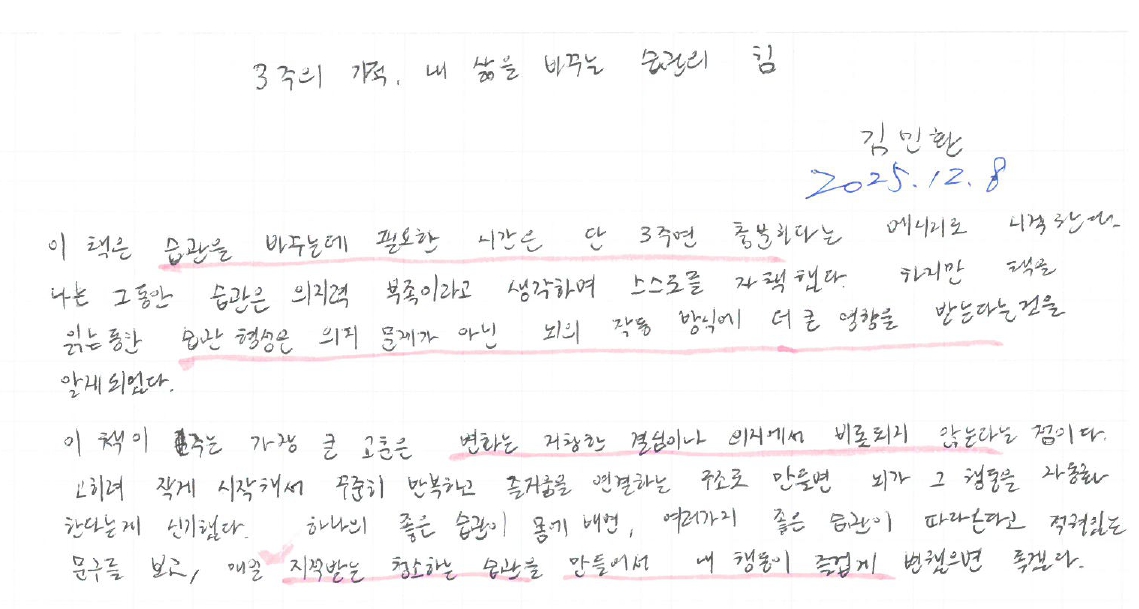 3주의 기적, 내 삶을 바꾸는 습관의 힘
김민환
2025.12.8
이 책은 습관을 바꾸는데 필요한 시간은 단 3주면 충분하다는 메시지로 시작한다.
나는 그동안 습관은 의지력 부족이라고 생각하며 스스로를 자책했다. 하지만 책을
읽는동안 습관 형성은 의지 문제가 아닌 뇌의 작동 방식에 더 큰 영향을 받는다는것을
알게되었다.
이 책이 주는 가장 큰 교훈은 변화는 거창한 결심이나 의지에서 비롯되지 않는다는 점이다.
고히려 작게 시작해서 꾸준히 반복하고 즐거움을 연결하는 구조로 만들면 뇌가 그 행동을 자동화
한다는게 신기했다. 하나의 좋은 습관이 몸에 배면, 여러가지 좋은 습관이 따라온다고 적혀있는
문구를 보고, 매일 지적받는 청소하는 습관을 만들어서 내 행동이 즐겁게 변했으면 좋겠다.